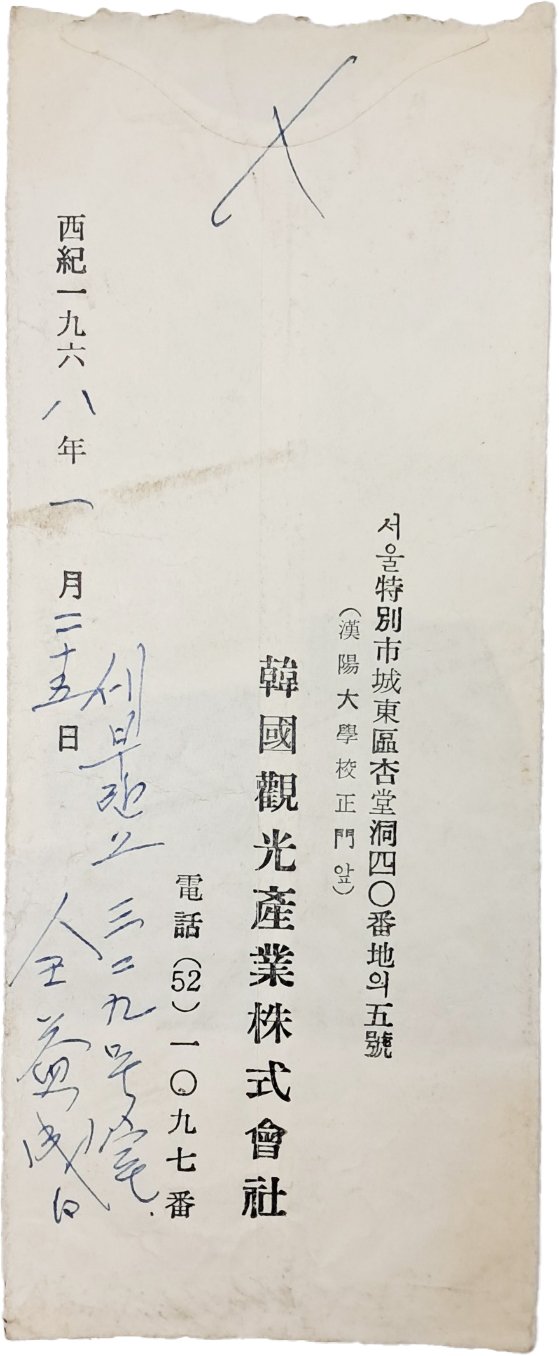 서울特別市城東區杏堂洞四〇番地의五號
(漢陽大學校正門앞)
韓國觀光產業株式會社
電話(52)一〇九七番
세 三二九号室
西紀一九六八年一月二十五日